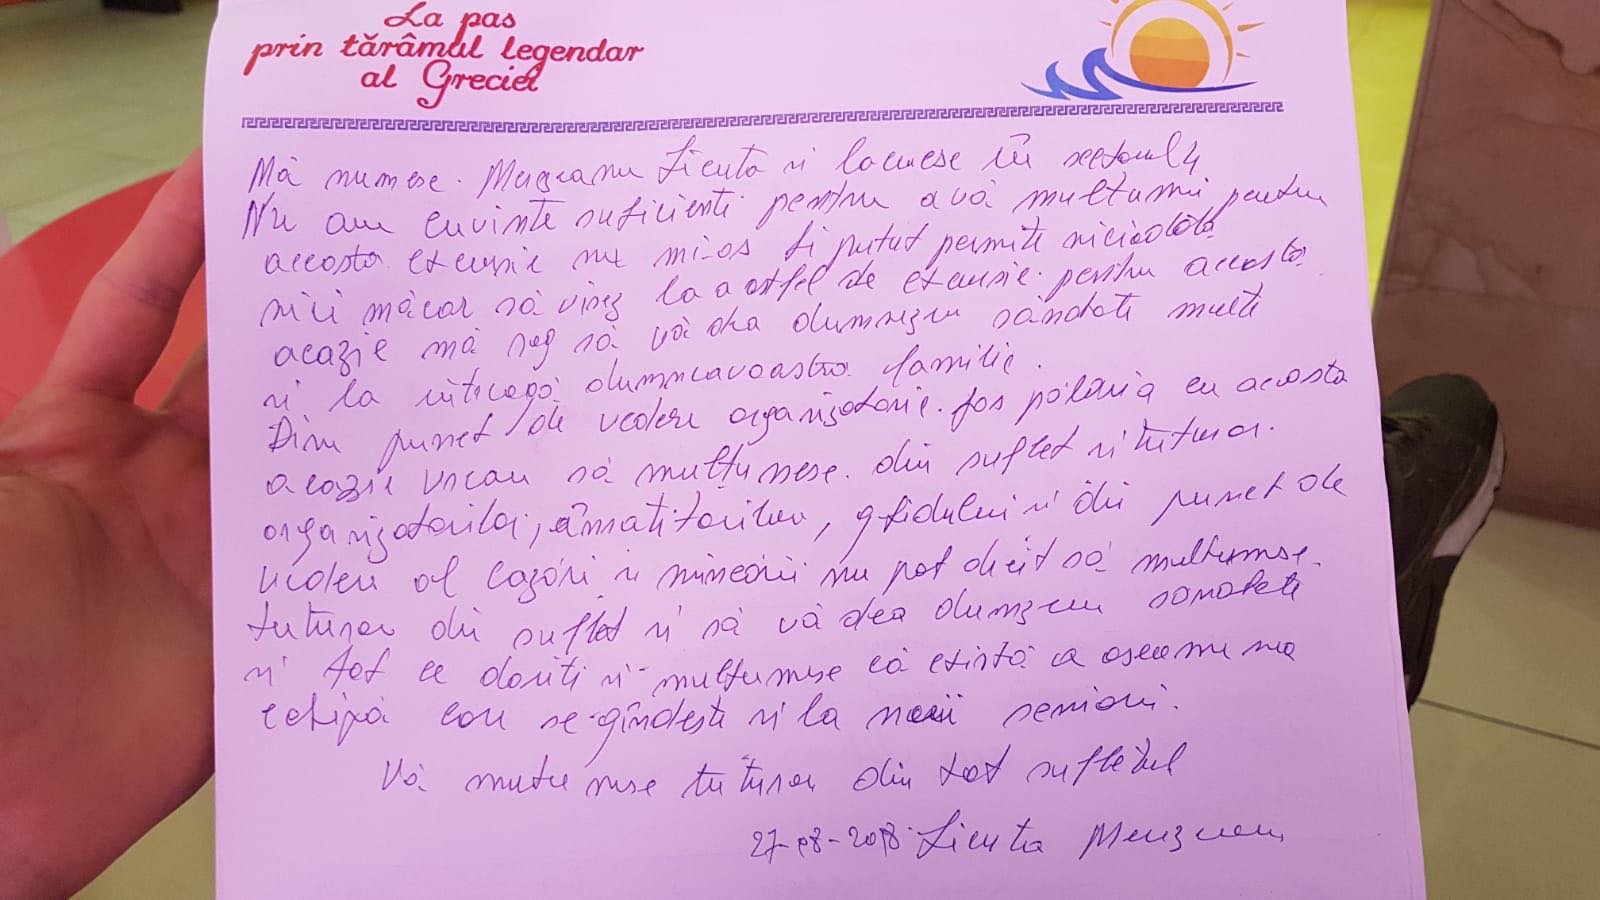 La pas
prin tărâmul legendar
al Greciei
Mă numesc. Lienta si locuiesc în sectorul 4
Nu am cuvinte suficienti pentru a vă multumii pentru
accosta excursie nu mi-as fi putut permite niciodată
nici măcar să visez la a astfel de excursie. pentru accosta
acazie mă rog să vă dea dumnezeu sănătate multă
si la intreaga dumneavoastra familie.
Din punct de vedere organizatoric. fos pălăria cu acosta
acazie vreau să mulțumesc. din suflet si tuturor.
organizatorilor, , si din punct de
vedere al cazări si mîncării nu pot decît să multumesc.
tuturor din suflet si să vă dea dumnezeu sanatate
si tot ce doriti si multumesc că există o asemenea
echipă care se gîndește si la noi seniori.
Vă multumesc tuturor din tot sufletul
27-08-2018 Lienta